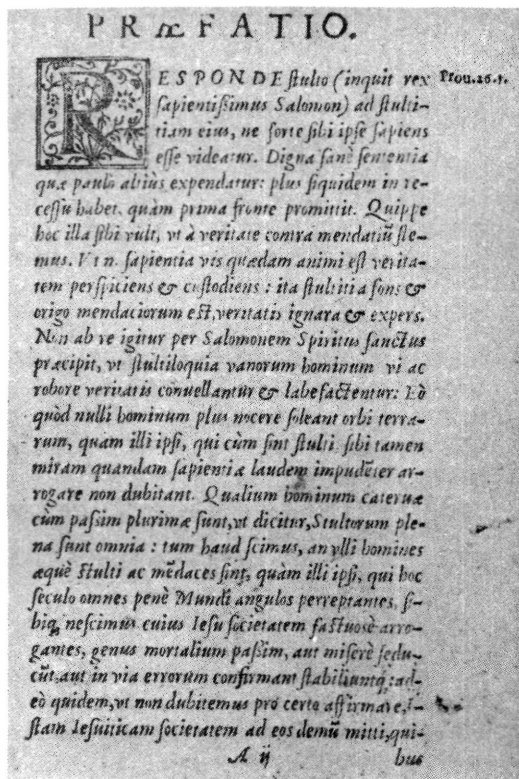 PRÆFATIO.
RESPONDE ſtulto (inquit rex Prou.26.5.
ſapientiſsimus Salomon) ad ſtulti-
tiam eius, ne forte ſibi ipſe ſapiens
eſſe videatur. Digna ſanè ſententia
quæ paulò altius expendatur: plus ſiquidem in re-
ceſſu habet, quàm prima fronte promittit. Quippe
hoc illa ſibi vult, vt à veritate contra mendatiũ ſte-
mus. Vt n. ſapientia vis quædam animi eſt verita-
tem perſpiciens & cuſtodiens: ita ſtultitia fons &
origo mendaciorum eſt, veritatis ignara & expers.
Non ab re igitur per Salomonem Spiritus ſanctus
præcipit, vt ſtultiloquia vanorum hominum vi ac
robore veritatis conuellantur & labefactentur: Eò
quòd nulli hominum plus nocere ſoleant orbi terra-
rum, quam illi ipſi, qui cùm ſint ſtulti, ſibi tamen
miram quandam ſapientiæ laudem impudẽter ar-
rogare non dubitant. Qualium hominum cateruæ
cùm paſsim plurimæ ſunt, vt dicitur, Stultorum ple-
na ſunt omnia: tum haud ſcimus, an vlli homines
æquè ſtulti ac mẽdaces ſint, quàm illi ipſi, qui hoc
ſeculo omnes penè Mundi angulos perreptantes, ſi-
biq; neſcimus cuius Ieſu ſocietatem faſtuosè arro-
gantes, genus mortalium paſsim, aut miſerè ſedu-
cũt, aut in via errorum confirmant ſtabiliuntq; : ad-
eò quidem, vt non dubitemus pro certo affirmare, i-
ſtam Ieſuiticam ſocietatem ad eos demũ mitti, qui-
A ij bus